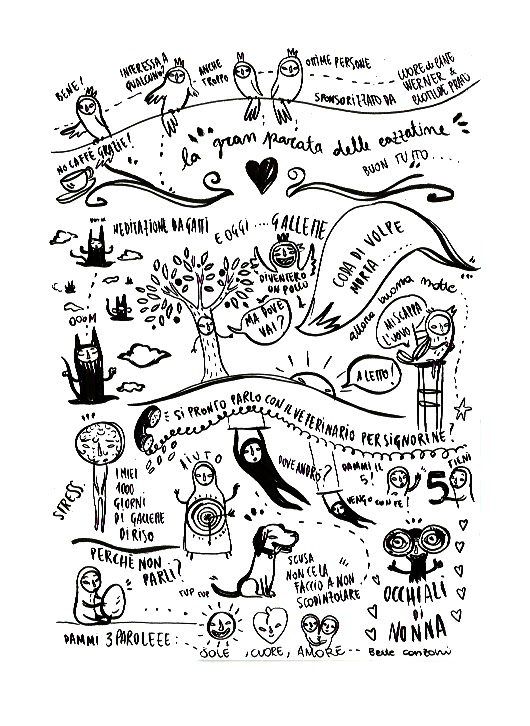 BENE!
INTERESSA A
QUALCUNO?
ANCHE
TROPPO
OTTIME PERSONE
SPONSORIZZATO DA
CUORE di CANE
WERNER &
CLOTILDE PRATO
NO CAFFÈ GRAZIE!
la gran parata delle cazzatine
BUON TUTTO....
MEDITAZIONE DA GATTI
E OGGI ....GALLETTE
DIVENTERÒ
UN POLLO
CODA DI VOLPE
MORTA.......
MA DOVE
VAI?
allora buona notte
MI SCAPPA
L'UOVO
OOOM
A LETTO!
E SI PRONTO PARLO CON IL VETERINARIO PER SIGNORINE?
STRESS
I MIEI
1000
GIORNI
DI GALLETTE
DI RISO
AIUTO
DOVE ANDRÒ?
DAMMI IL
5!
TIENI
5
VENGO CON TE!
PERCHÈ NON
PARLI?
TUP TUP
SCUSA
NON CE LA
FACCIO A NON
SCODINZOLARE
OCCHIALI
DI
NONNA
DAMMI 3 PAROLEEE:
SOLE ,CUORE, AMORE...
Belle canzoni